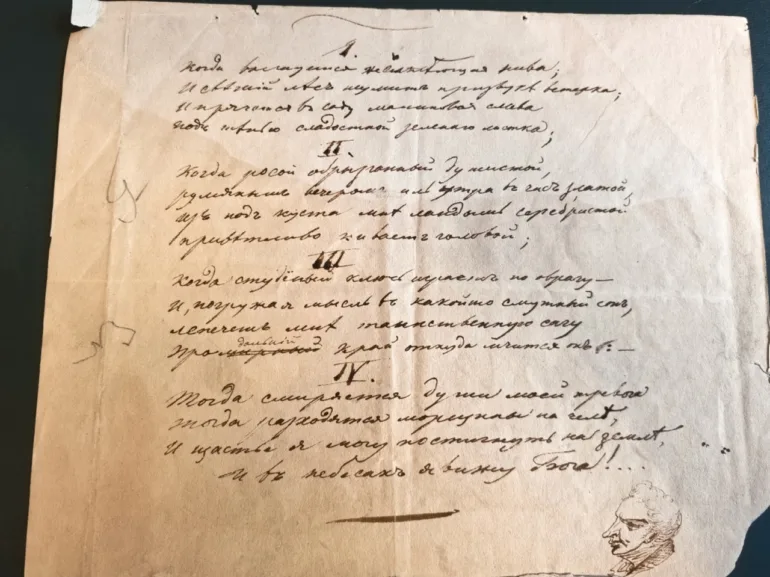 I.
Когда волнуется желтѣющая нива;
И свѣжій лѣсъ шумитъ при звукѣ вѣтерка;
И прячется въ саду малиновая слива
Подъ тѣнью сладостной зеленаго листка;
II.
Когда росой обрызганный душистой,
румянымъ вечеромъ иль утра въ часъ златой,
Изъ подъ куста мнѣ ландышъ серебристой
привѣтливо киваетъ головой;
III
Когда студёный ключь играетъ по оврагу —
И, погружая мысль въ какойто смутный сонъ,
лепечетъ мнѣ таинственную сагу
дальный
Про мирный край откуда мчится онъ: —
IV.
Тогда смиряется души моей тревога
тогда расходятся морщины на челѣ,
И щастье я могу постигнуть на землѣ,
И въ небесахъ я вижу Бога!....